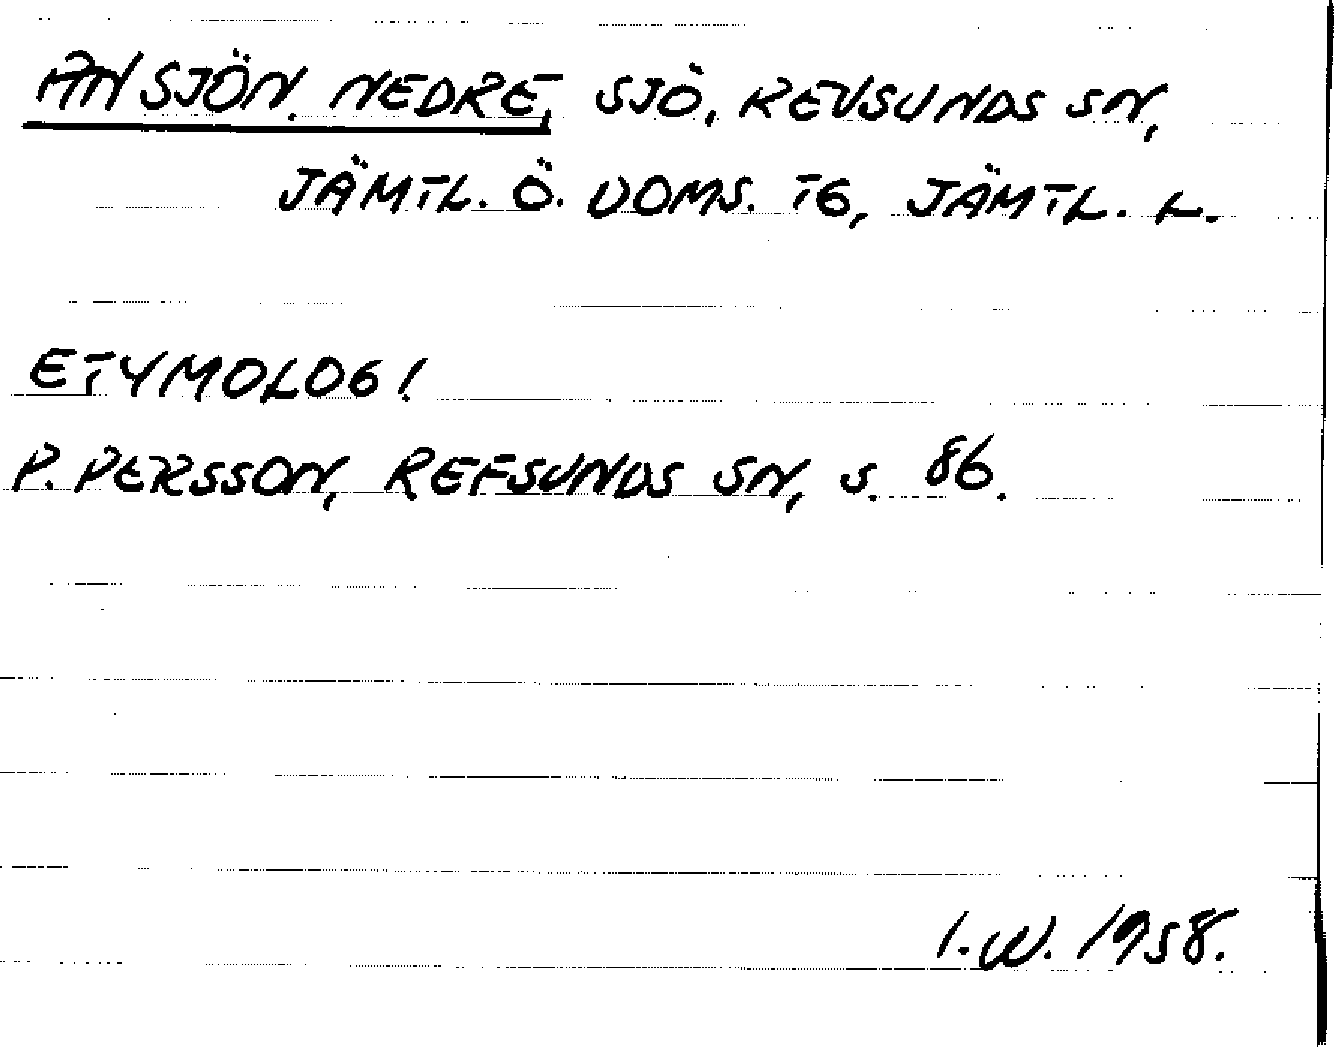 ANSJÖN. NEDRE, SJÖ, REVSUNDS SN,
JÄMTL. Ö. DOMS. TG, JÄMTL. L.
ETYMOLOGI.
P. PERSSON, REFSUNDS SN, S. 86.
I.W. 1958.